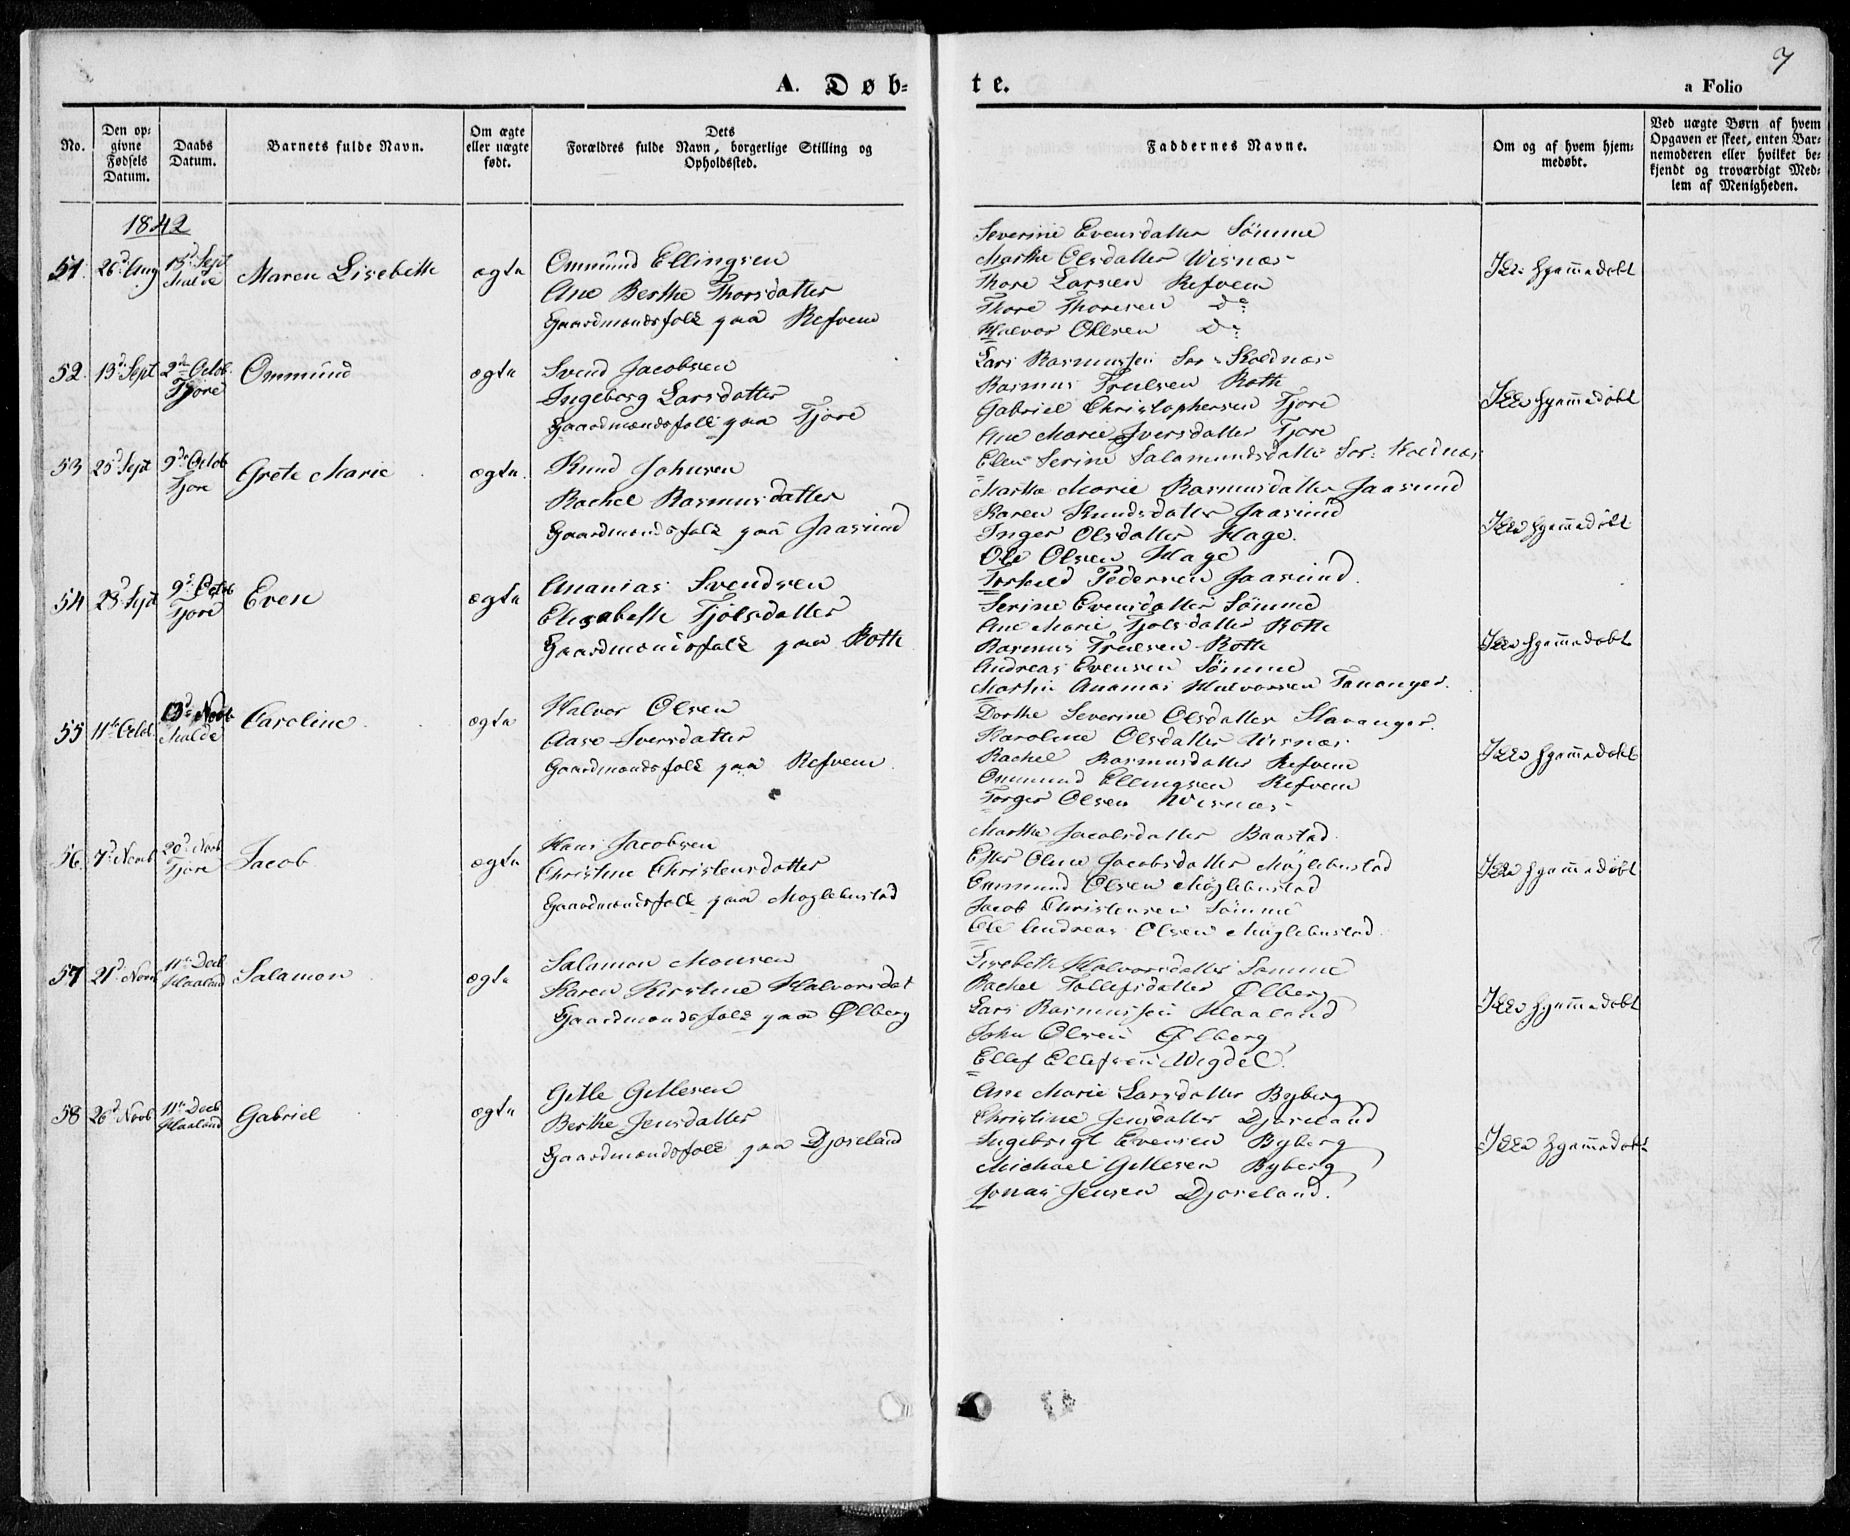 7
A. Døb=
te.
a Folio
No.
Den op=
givne
Fødsels
Datum.
Daabs
Datum.
Barnets fulde Navn.
Om ægte
eller uægte
født.
Dets
Forældres fulde Navn, borgerlige Stilling og
Opholdssted.
Faddernes Navne.
Om og af hvem hjem=
medøbt.
Ved uægte Børn af hvem
Opgaven er skeet, enten Bar=
nemoderen eller hvilket be=
kjendt og troværdigt Med=
lem af Menigheden.
1842
51. 26d Aug 18d Sept
Malde
Maren Lisebette
ægte
Ommund Ellingsen
Ane Berthe Thorsdatter
Gaardmandsfolk paa Refvem
Severine Evensdatter Sømme
Marthe Olsdatter Wisnæs
Thore Larsen Refvem
Thore Thoresen Do
Halvor Olsen Do
Ikke hjemmedøbt
52. 13d Sept 2den Octob.
Tjore
Ommund
ægte
Svend Jacobsen
Ingeborg Larsdatter
Gaardmandsfolk paa Tjore
Lars Rasmussen Sør-Koldnæs
Rasmus Truelsen Rothe
Gabriel Christophersen Tjore
Ane Marie Iversdatter Tjore
Elen Serine Salamundsdatter Sør: Koldnæs
Ikke hjemmedøbt
53 25d Sept 9de Octob
Tjore
Grete Marie
ægte.
Knud Johnsen
Rachel Rasmusdatter
Gaardmandsfolk paa Jaasund
Marthe Marie Rasmusdatter Jaasund
Karen Knudsdatter Jaasund
Inger Olsdatter Hage.
Ole Olsen Hage
Torkild Pedersen Jaasund.
Ikke hjemmedøbt
54 28 Sept 9d Octob
Tjore
Even
ægte
Ananias Svendsen
Elisabeth Tjølsdatter
Gaardmandsfolk paa Rothe
Serine Evensdatter Sømme
Ane Marie Tjølsdatter Rothe
Rasmus Truelsen Rothe
Andreas Evensen Sømme
Martin Ananias Halvorsen Tananger.
Ikke hjemmedøbt
55 11te Octob. 13d Novb
Malde
Caroline
ægte
Halvor Olsen
Aase Iversdatter
Gaardmandsfolk paa Refvem
Dorthe Severine Olsdatter Stavanger.
Karoline Olsdatter Wisnæs
Rachel Rasmusdatter Refvem
Ommund Ellingsen Refvem
Torger Olsen Wisnæs
Ikke hjemmedøbt
56. 7d Novb 20d Novb
Tjore
Jacob
ægte
Hans Jacobsen
Christine Christensdatter
Gaardmandsfolk paa Møglebustad
Marthe Jacobsdatter Baastad
Olene Jacobsdatter Møglebustad
Ommund Olsen Møglebustad
Jacob Christensen Sømme
Ole Andreas Olsen Møglebustad.
Ikke hjemmedøbt
57 21d Novb 11te Decb
Haaland
Salamon
ægte
Salamon Monsen
Karen Kirstine Halvorsdat
Gaardmandsfolk paa Ølberg
Lisebeth Halvorsdatter Sømme
Rachel Tollefsdatter Ølberg
Lars Rasmussen Haaland
John Olsen Ølberg
Ellef Ellefsen Wigdel.
Ikke hjemmedøbt
58 26d Novb 11te Decb
Haaland
Gabriel
ægte
Gitle Gitlesen
Berthe Jensdatter
Gaardmandsfolk paa Djoseland
Ane Marie Larsdatter Byberg
Christine Jensdatter Djoseland
Ingebrigt Evensen Byberg
Michael Gitlesen Byberg
Jonas Jensen Djoseland.
Ikke hjemmedøbt